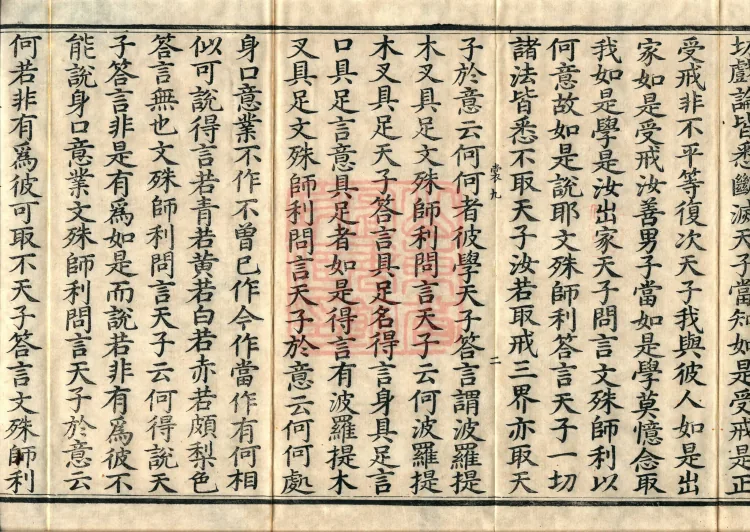 切戲論皆悉斷滅天子當知如是受戒是正
受戒非不平等復次天子我與彼人如是出
家如是受戒汝善男子當如是學莫憶念取
我如是學是汝出家天子問言文殊師利以
何意故如是說耶文殊師利答言天子一切
諸法皆悉不取天子汝若取戒三界亦取天
裳九 二
子於意云何何者彼學天子答言謂波羅提
木叉具足文殊師利問言天子云何波羅提
木叉具足天子答言具足名得言身具足言
口具足言意具足者如是得言有波羅提木
叉具足文殊師利問言天子於意云何何處
身口意業不作不曾已作今作當作有何相
似可說得言若青若黃若白若赤若頗梨色
答言無也文殊師利問言天子云何得說天
子答言非是有爲如是而說若非有爲彼不
能說身口意業文殊師利問言天子於意云
何若非有爲彼可取不天子答言文殊師利